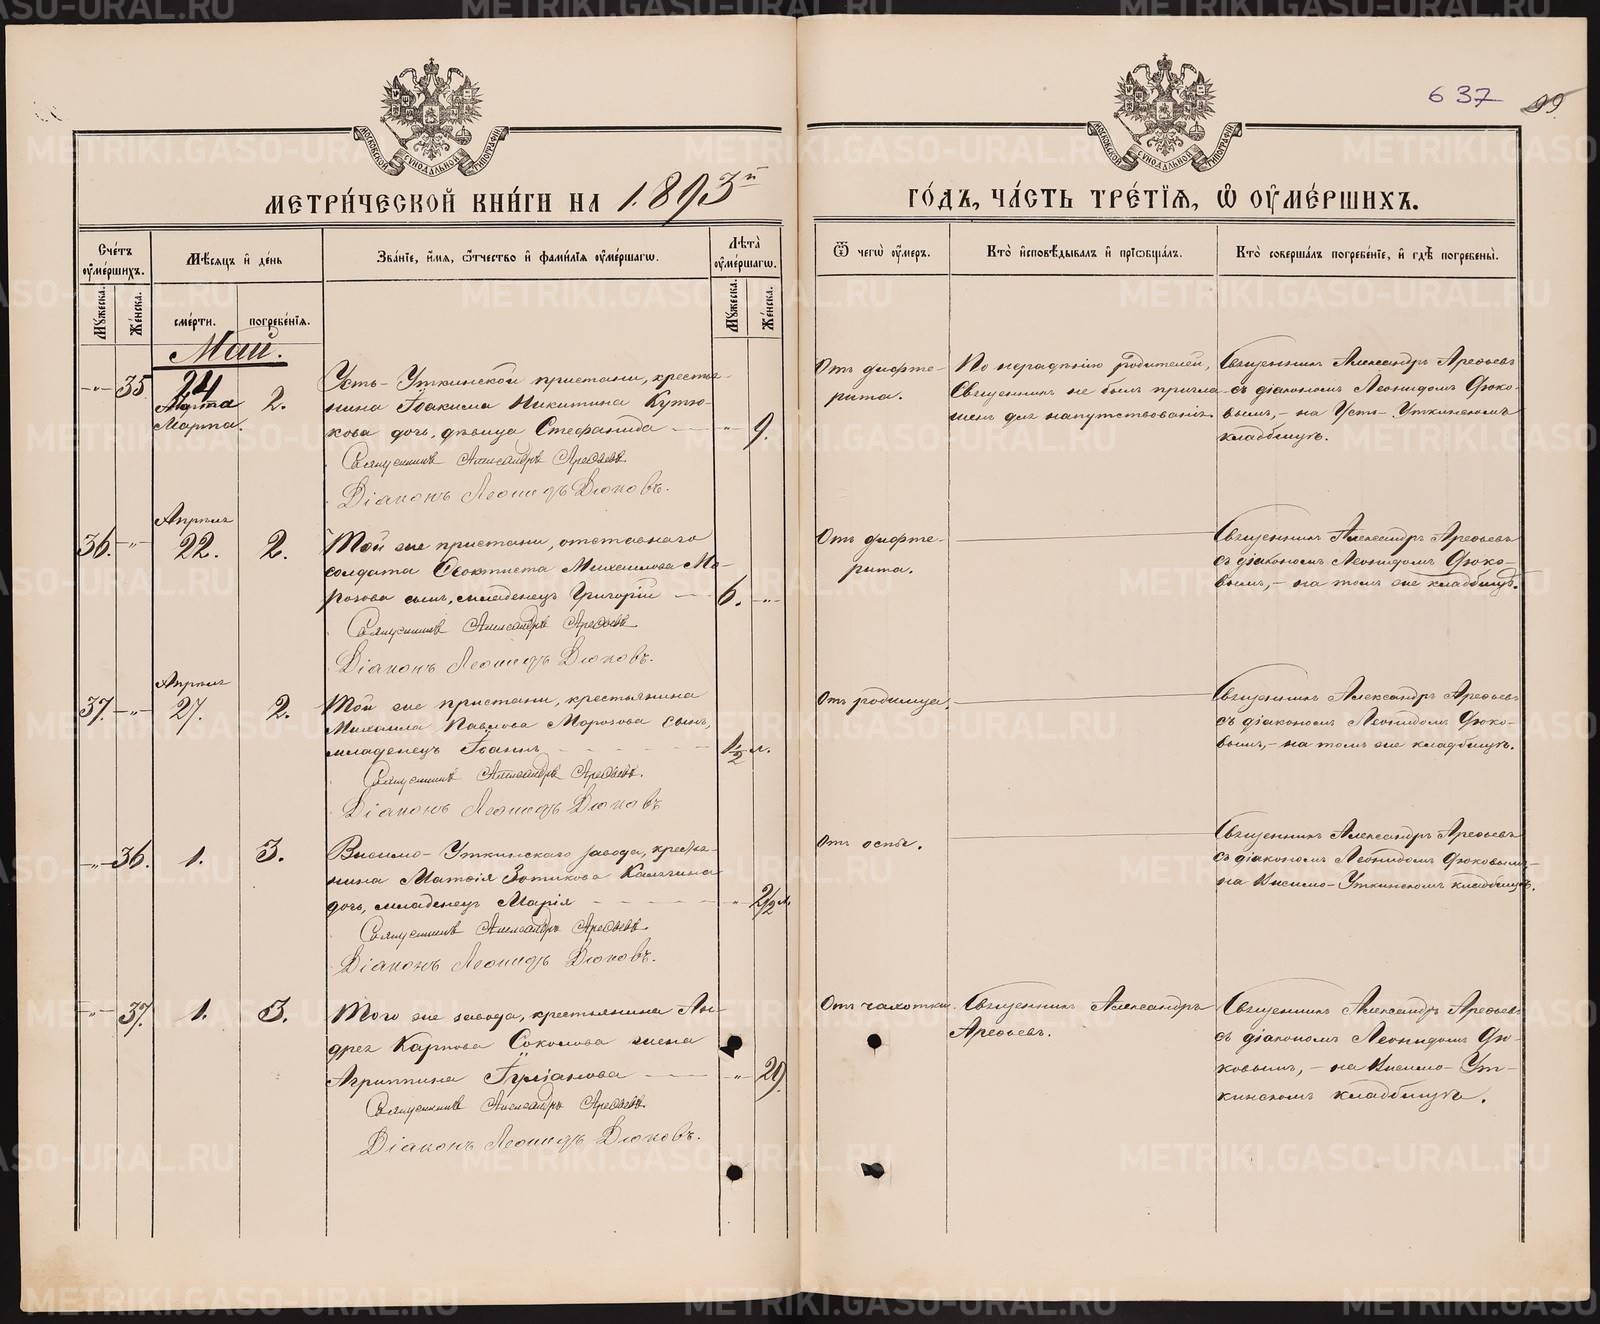 637 99
МОСКОВСКОЙ СѴНОДАЛЬНОЙ ТИПОГРАФІИ
МОСКОВСКОЙ СѴНОДАЛЬНОЙ ТИПОГРАФІИ
МЕТРИ́ЧЕСКОЙ КНИ́ГИ НА 1893й
ГО́ДЪ, ЧА́СТЬ ТРЕ́ТІѦ, Ѡ ОУ҆МЕ́РШИХЪ.
Сче́тъ оу҆ме́ршихъ.
Мѣ́сяцъ и҆ де́нь
Зва́ніе, и҆́мя, ѻ҆́тчество и҆ фами́лія оу҆ме́ршагѡ.
Лѣ́та оу҆ме́ршагѡ.
Ѿ чегѡ̀ оу҆́меръ.
Кто̀ и҆сповѣ́дывалъ и҆ прїѡбща́лъ.
Кто̀ соверша́лъ погребе́ніе, и҆ гдѣ̀ погребены̀.
Мꙋ́жеска.
Же́нска.
сме́рти.
погребе́нія.
Мꙋ́жеска.
Же́нска.
Май.
-"- 35
24
Марта
Марта.
2.
Усть-Уткинской пристани, крестья-
нина Іоакима Никитина Кутю-
кова дочь, дѣвица Стефанида — " 9.
Священникъ Александръ Арефьевъ
Діаконъ Леонидъ Дюковъ.
Отъ дифте-
рита.
По нерадѣнію родителей,
Священникъ не былъ пригла
шенъ для напутствованія
Священникъ Александръ Арефьевъ
съ діакономъ Леонидомъ Дюко-
вымъ, - на Усть-Уткинскомъ
кладбищѣ.
36. -"-
Апрѣля
22.
2.
Той же пристани, отставнаго
солдата Ѳеоктиста Михаилова Мо-
розова сынъ, младенецъ Григорій — 6. -"-
Священникъ Александръ Арефьевъ
Діаконъ Леонидъ Дюковъ.
Отъ дифте-
рита.
Священникъ Александръ Арефьевъ
съ діакономъ Леонидомъ Дюко-
вымъ, - на томъ же кладбищѣ.
37. -"-
Апрѣля
27.
2.
Той же пристани, крестьянина
Михаила Павлова Морозова сынъ,
младенецъ Іоаннъ — 1½ л.
Священникъ Александръ Арефьевъ.
Діаконъ Леонидъ Дюковъ
Отъ родимца.
Священникъ Александръ Арефьевъ
съ діакономъ Леонидомъ Дюко-
вымъ, - на томъ же кладбищѣ.
-"- 36.
1.
3.
Висимо-Уткинскаго завода, крестья-
нина Матѳія Зотикова
дочь, младенецъ Марія — " 2½ л.
Священникъ Александръ Арефьевъ
Діаконъ Леонидъ Дюковъ.
Отъ оспы.
Священникъ Александръ Арефьевъ
съ діакономъ Леонидомъ Дюковымъ-
на Висимо-Уткинскомъ кладбищѣ.
-"- 37.
1.
3.
Того же завода, крестьянина Ан-
дрея Карпова Соколова жена
Агриппина Іуліанова — " 29.
Священникъ Александръ Арефьевъ
Діаконъ Леонидъ Дюковъ.
Отъ чахотки.
Священникъ Александръ
Арефьевъ.
Священникъ Александръ Арефьевъ
съ діакономъ Леонидомъ Дю-
ковымъ, - на Висимо-Ут-
кинскомъ кладбищѣ.
METRIKI.GASO-URAL.RU